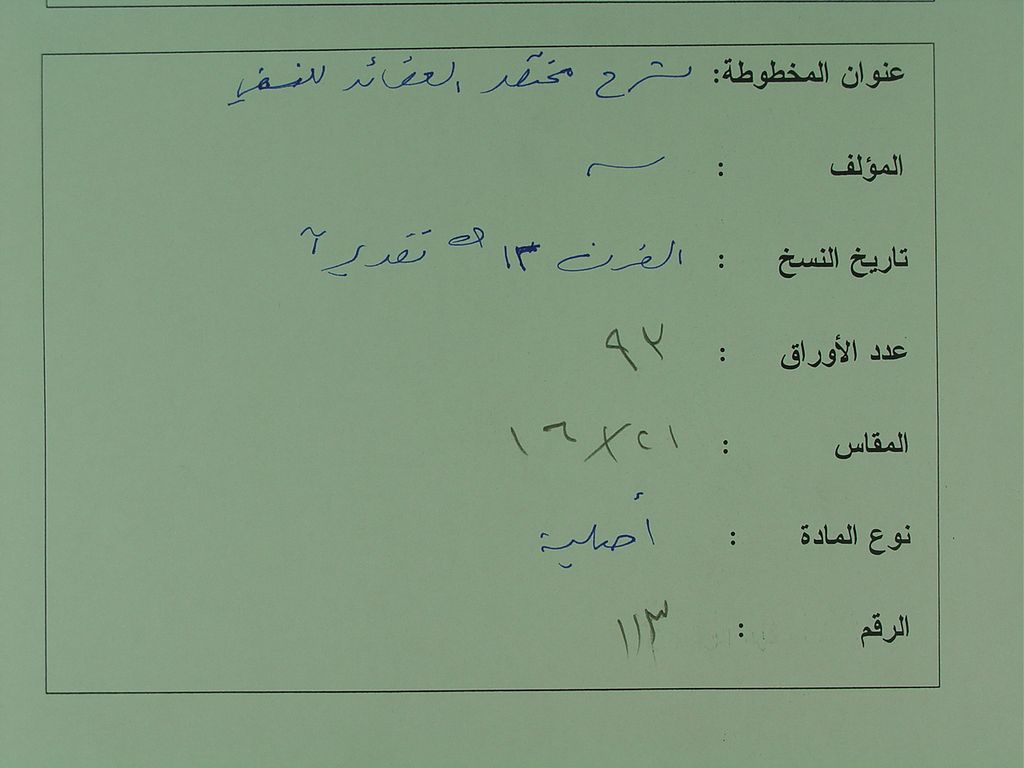 عنوان المخطوطة: شرح مختصر العقائد للنسفي
المؤلف :
تاريخ النسخ : القرن ١٣ هـ تقديرآ
عدد الأوراق : ٩٢
المقاس : ٢١ × ١٦
نوع المادة : أصلية
الرقم : ١١٣